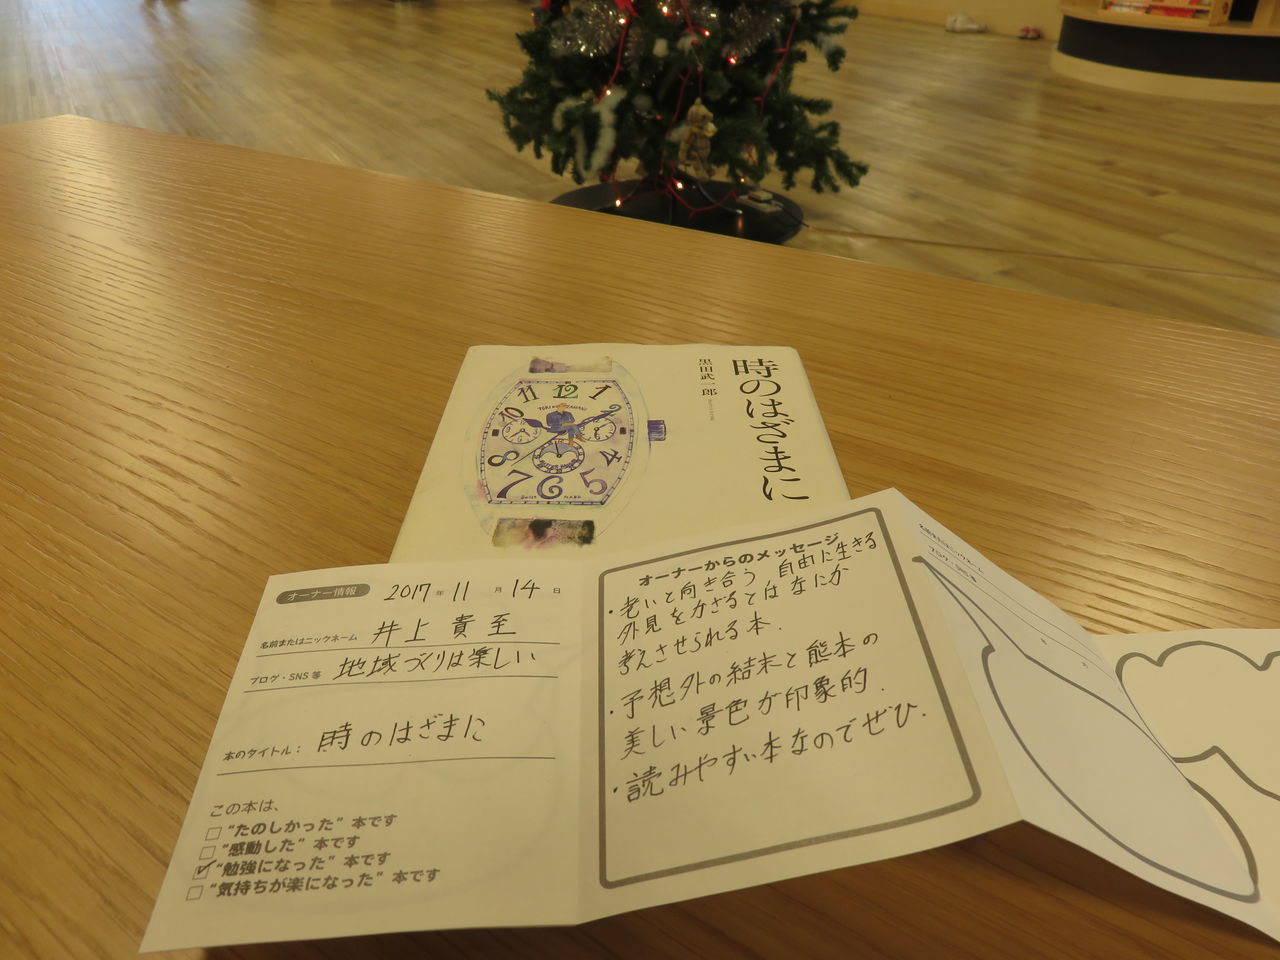 時のはざまに
黒田武一郎
11 12 1
10 2
8 4
7 6 5
オーナー情報 2017年 11月 14日
名前またはニックネーム 井上 貴至
ブログ・SNS 等 地域づくりは楽しい
本のタイトル： 時のはざまに
この本は、
□ “たのしかった” 本です
□ “感動した” 本です
☑ “勉強になった” 本です
□ “気持ちが楽になった” 本です
オーナーからのメッセージ
・老いと向き合う、自由に生きる
外見をかざるとはなにか
考えさせられる本.
・予想外の結末と熊本の
美しい景色が印象的.
・読みやすい本なのでぜひ.
名前またはニックネーム
ブログ・SNS 等